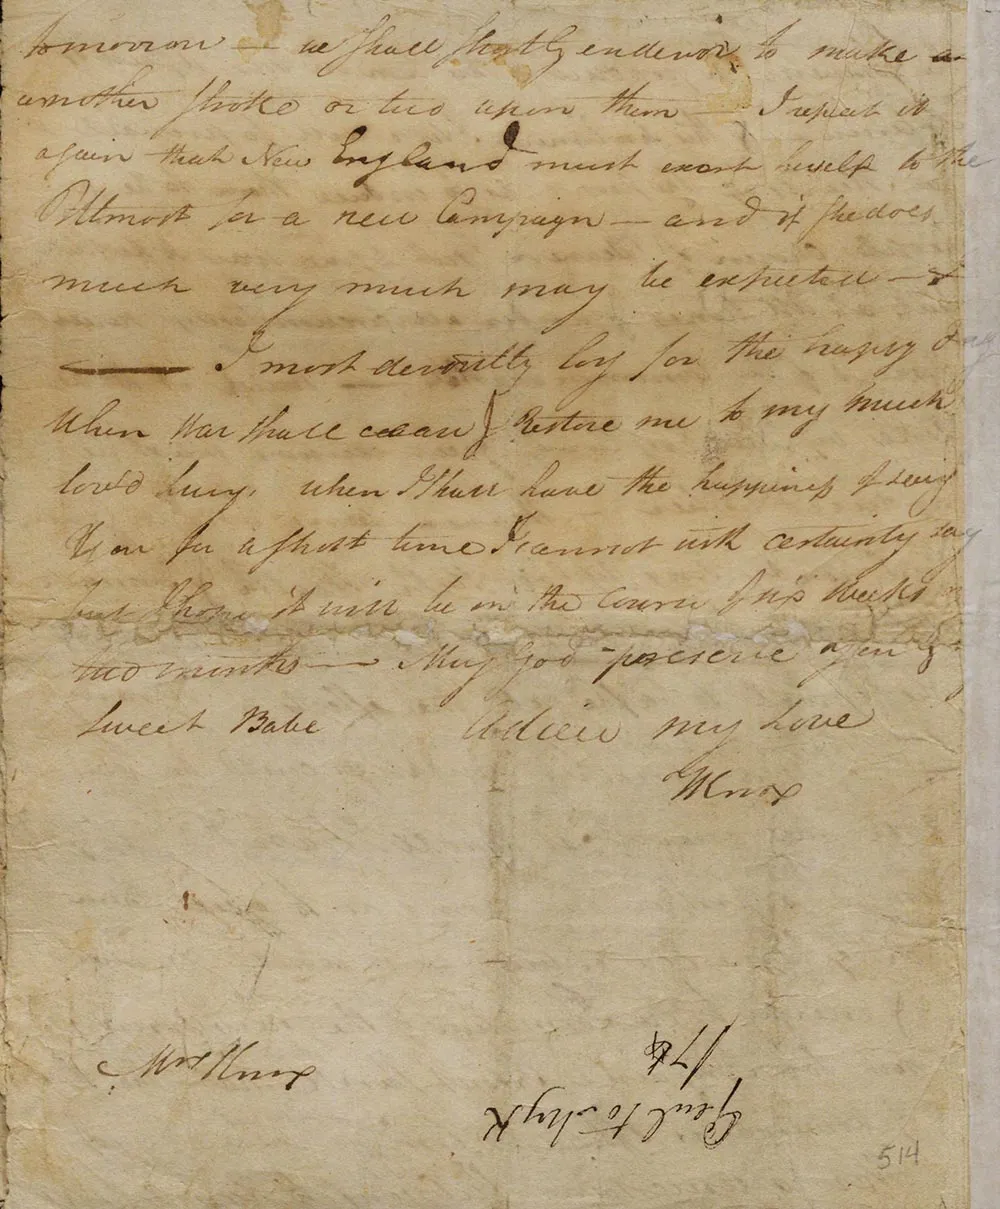 tomorrow — we shall shortly endevor to make a
another stroke or two upon them — I repeat it
again that New England must exert herself to the
Uttmost for a new Campaign — and if she does
much very much may be expected —
— I most devoutly long for the happy day
When War shall cease & Restore me to my much
lov'd Lucy. when I shall have the happiness of seeing
You for a short time I cannot with certainty say
but I hope it will be in the course of six Weeks or
two months — May God preserve you &
sweet Babe Adieu my Love
HKnox
Mrs Knox
Genl to Mrs K
514